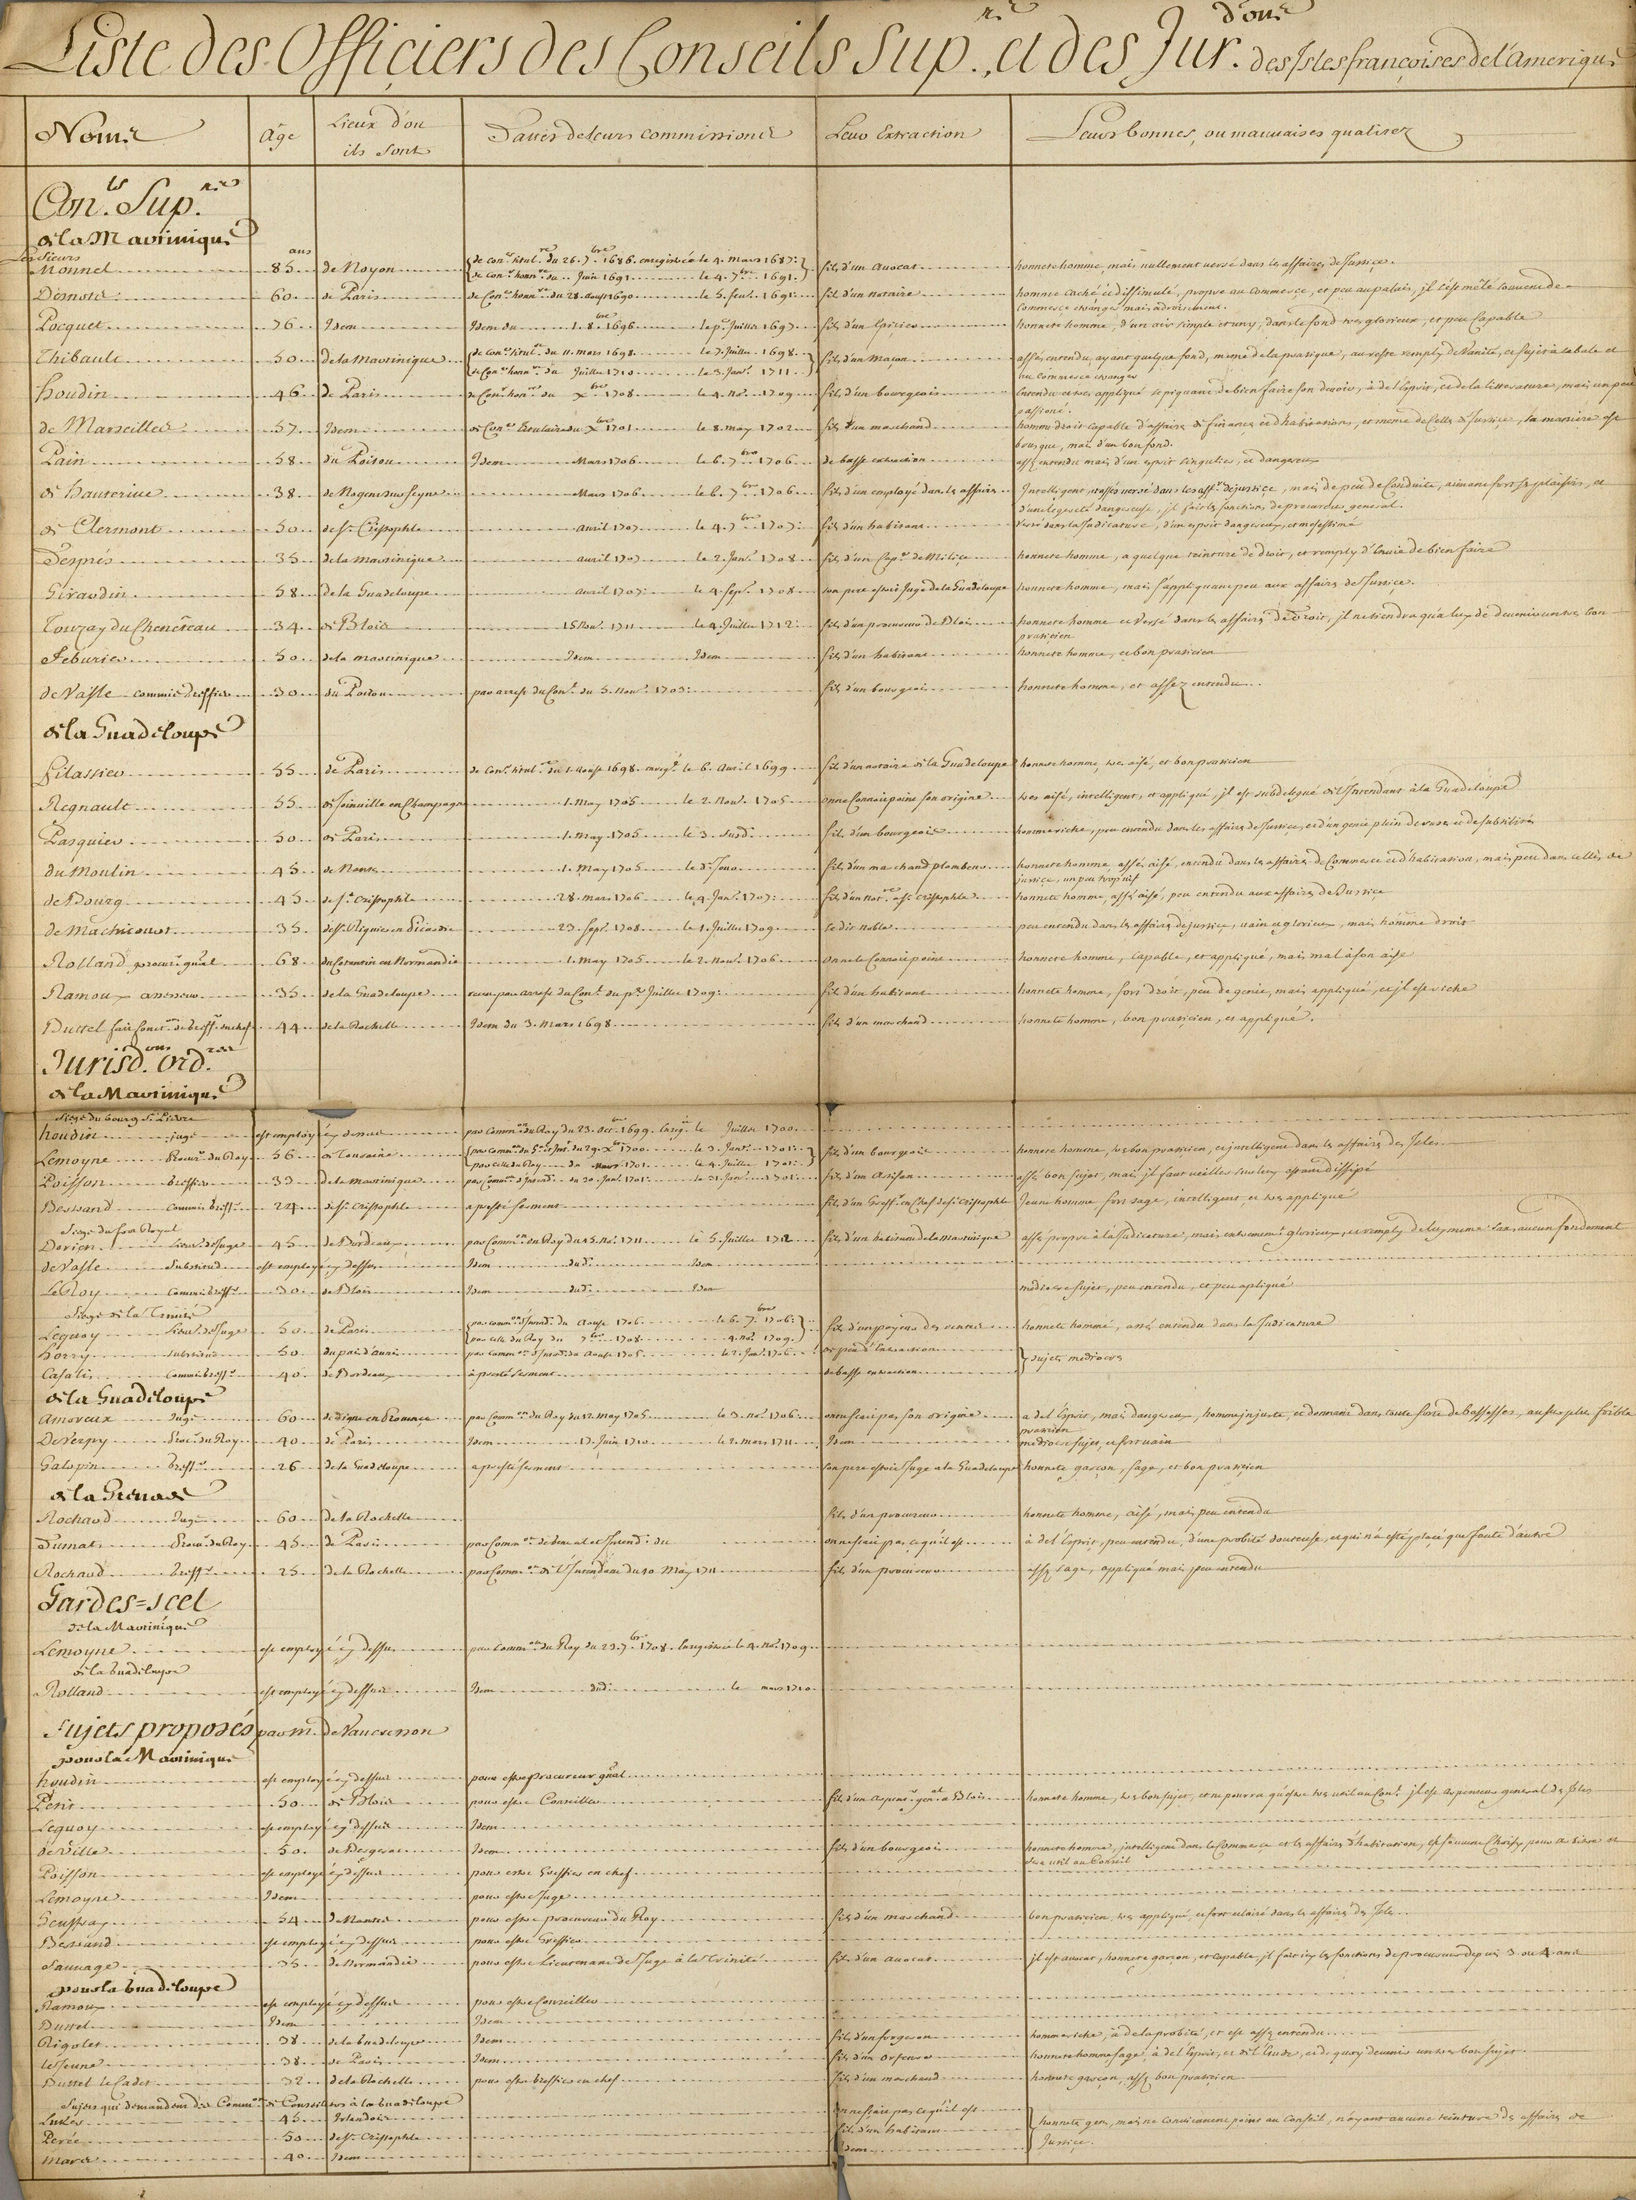 Liste des Officiers des Conseils Sup.rs, et des Jur.dons des Isles françoises de l'amerique
Noms
Age
Lieux d'ou ils sont
Dattes de leurs commissions
Leur Extraction
Leurs bonnes, ou mauvaises qualitez
Con.ls Sup.rs
de la Martinique
Les Sieurs
Monnel 85 ans de Noyon de Con.er titul.re du 26. 7.bre 1686. enregistrée le 4. mars 1687. fils d'un avocat honneste homme, mais nullement versé dans les affaires de Justice.
de Con.er honn.re du Juin 1691 le 4. 7.bre 1691.
60 de Paris de Con.er honn.re du 28. aoust 1690 le 5. feu.r 1691 fils d'un notaire homme caché et dissimulé, propre au commerce, et peu au palais, il s'est mêlé souvent de
Commerce etranger mais adroitement.
Pocquet 76 Idem Idem du 1. 8.bre 1696 le p.r Juillet 1697 fils d'un Epicier honneste homme, d'un air simple et uny, dans le fond tres glorieux, et peu capable
Thibault 50 de la Martinique de Con.er titul.re du 11. mars 1698 le 7. Juillet 1698. fils d'un Maçon assés entendu, ayant quelque fond, meme de la pratique, au reste remply de Vanité, et sujet à
de Con.er honn.re du Juillet 1710 le 3. Jan.r 1711 au commerce etranger
houdin 46 de Paris de Con.er hon.re du X.bre 1708 le 4. no.e 1709 fils d'un bourgeois entendu et tres appliqué se piquant de bien faire son devoir, a de l'esprit, et de la litterature, mais un peu
passioné.
de Marseilles 57 Idem de Con.er titulaire du X.bre 1701 le 8. may 1702 fils d'un marchand homme droit capable d'affaires de finances et d'habitations, et meme de celles de Justice, sa maniere est
brusque, mais d'un bon fond.
Pain 58 du Poitou Idem Mars 1706 le 6. 7.bre 1706 de basse extraction assés entendu mais d'un esprit singulier, et dangereux
de hauterive 38 de Nogent sur Seyne Mars 1706 le 6. 7.bre 1706 fils d'un employé dans les affaires Intelligent et assés versé dans les aff.res de justice, mais de peu de conduite, aimant fort ses plaisirs, et
d'une legereté dangereuse, il fait les fonctions de procureur general.
de Clermont 50 de S.t Cristophle avril 1707 le 4. 7.bre 1707 fils d'un habitant versé dans la Judicature, d'un esprit dangereux, et mesestimé
Després 35 de la martinique avril 1707 le 2. Jan.r 1708 fils d'un Cap.ne de Milice honneste homme, a quelque teinture de droit, et remply d'Envie de bien faire
Giraudin 58 de la Guadeloupe avril 1707 le 4. Sep.t 1708 son pere estoit Juge de la Guadeloupe honneste homme, mais s'appliquant peu aux affaires de Justice.
Touzay du Cheneteau 34 de Blois 15 Nov. 1711 le 4. Juillet 1712 fils d'un procureur de Blois honneste homme et versé dans les affaires de Droit, il ne tiendra qu'a luy de devenir un tres bon
praticien
Febvrier 50 de la martinique Idem Idem fils d'un habitant honneste homme, et bon praticien
de Vasse commis de greffier 30 du Poitou par arrest du Con.l du 5. Nov. 1703 fils d'un bourgeois honneste homme, et assez entendu
de la Guadeloupe
filassier 55 de Paris de Con.er titul.re du 1. aoust 1698. enreg.é le 6. avril 1699 fils d'un notaire de la Guadeloupe honneste homme, tres aisé, et bon praticien
Regnault 55 de Joinville en Champagne 1. may 1705 le 2. Nov. 1705 on ne connoit point son origine tres aisé, intelligent, et appliqué, il est subdelegué de l'Intendant à la Guadeloupe
Pasquier 50 de Paris 1. may 1705 le 3. dud. fils d'un bourgeois homme riche, peu entendu dans les affaires de Justice, et d'un genie plein de ruses et de subtilités
du Moulin 45 de Nantes 1. May 1705 le d. Jour fils d'un marchand plombeur honneste homme, assés aisé, entendu dans les affaires de Commerce et d'habitation, mais peu dans celles de
justice, un peu trop vif
de Bourg 45 de S.t Cristophle 28 mars 1706 le 4. Jan.r 1707 fils d'un Not.re a S.t Cristophle honneste homme, assé aisé, peu entendu aux affaires de Justice
de Machicourt 35 de S.t Riquier en Picardie 23 Sep.t 1708 le 1. Juillet 1709 se dit noble peu entendu dans les affaires de justice, vain et glorieux, mais homme droit
Rolland procur.r gñal 68 du Cotentin en Normandie 1. may 1705 le 2. Nov. 1706 on ne le connoit point honneste homme, capable, et appliqué, mais mal à son aise
Ramoux assesseur 35 de la Guadeloupe receu par arrest du Con.l du p.r Juillet 1709 fils d'un habitant honneste homme, fort droit, peu de genie, mais appliqué, et il est riche
Dussel fait fonct.on de Greff.r en chef 44 de la Rochelle Idem du 3. mars 1698 fils d'un marchand honneste homme, bon praticien, et appliqué.
Jurisd.ons ord.res
de la Martinique
Siege du bourg S.t Pierre
houdin juge est employé cy dessus par Comm.on du Roy du 23. oct.bre 1699. enreg.ée le Juillet 1700
Lemoyne Procur.r du Roy 56 de Touraine par comm.on de l'Int. du 29. X.bre 1700 le 3. Jan.r 1701 fils d'un bourgeois honneste homme, tres bon praticien, et intelligent dans les affaires des Isles
par celle du Roy du Mars 1701 le 4. Juillet 1701
Poisson Greffier 33 de la martinique par Comm.on d'Intend. du 30. Jan.r 1701 le 31. Jan.r 1701 fils d'un Artisan assés bon sujet, mais il faut veiller sur luy estant dissipé
Bessand commis Greff.r 24 de S.t Cristophle a presté serment fils d'un Greff.r en Chef de S.t Cristophle Jeune homme fort sage, intelligent, et tres appliqué
Siege du fort Royal
Derien Lieut. de Juge 45 de Bordeaux par Comm.on du Roy du 15. No.e 1711 le 5. Juillet 1712 fils d'un habitant de la martinique assé propre à la Judicature, mais extremem.t glorieux, et remply de luy meme sans aucun fondement
de Vasse Substitud est employé cy dessus Idem dud. Idem
LeRoy Commis Greff.r 30 de Blois Idem dud. Idem mediocre sujet, peu entendu, et peu apliqué
Siege de la Trinité
Lequoy Lieut. de Juge 50 de Paris par comm.on d'Intend. du Aoust 1706 le 6. 7.bre 1706 fils d'un payeur des rentes honneste homme, assés entendu dans la Judicature
par celle du Roy du 7.bre 1708 4. no.e 1709
horry substitud 50 du païs d'aunis par comm.on d'Intend. du Aoust 1705 le 2. Jan.r 1706 de peu d'extraction sujets mediocres
Casalis Commis Greff.r 40 de Bordeaux a presté serment de basse extraction
de la Guadeloupe
Amoreux Juge 60 de digne en Provence par Comm.on du Roy du 12. may 1705 le 3. no.e 1706 on ne scait pas son origine a de l'Esprit, mais dangereux, homme injuste, et donnant dans toute sorte de bassesses, au surplus foible
praticien
DeVerpy Proc.r du Roy 40 de Paris Idem 17. Juin 1710 le 2. mars 1711 Idem mediocre sujet, et fort vain
Galopin Greff.r 26 de la Guadeloupe a presté serment son pere estoit Juge a la Guadeloupe honneste garçon, sage, et bon praticien
de la Grenade
Rochard Juge 60 de la Rochelle fils d'un procureur honneste homme, aisé, mais peu entendu
Dumas Procur. du Roy 45 de Paris par Comm.on de General et Intend. du on ne scait pas ce qu'il est a de l'Esprit, peu entendu, d'une probité douteuse, et qui n'a esté placé que faute d'autre
Rochard Greff.r 25 de la Rochelle par Comm.on de l'Intendant du 10 May 1711 fils d'un procureur assez sage, appliqué mais peu entendu
Gardes=scel
de la Martinique
Lemoyne est employé cy dessus par Comm.on du Roy du 23. 7.bre 1708. Enregistrée le 4. no.e 1709
de la Guadeloupe
Rolland est employé cy dessus Idem dud. le mars 1710
Sujets proposés par M. de Vaucresson
pour la Martinique
houdin est employé cy dessus pour estre procureur gñal
Petit 50 de Blois pour estre Conseiller fils d'un Arpent.r gen.al a Blois honneste homme, tres bon sujet, et ne pourra qu'estre tres util au Con.l il est arpenteur general des Isles
Lequoy est employé cy dessus Idem
de Ville 50 de Bergerac Idem fils d'un bourgeois honneste homme, intelligent dans le Commerce et les affaires d'habitation,
estre util au Conseil
Poisson est employé cy dessus pour estre Greffier en chef
Lemoyne Idem pour estre Juge
54 de Nantes pour estre procureur du Roy fils d'un marchand bon praticien, tres appliqué, et fort eclairé dans les affaires des Isles
Bessand est employé cy dessus pour estre Greffier
Sauvage 35 de Normandie pour estre Lieutenant de Juge à la Trinité fils d'un avocat il est avocat, honneste garçon, et capable, il fait icy les fonctions de procureur depuis 3 ou 4 ans
pour la Guadeloupe
Ramoux est employé cy dessus pour estre Conseiller
Dussel Idem Idem
Rigolet 38 de la Guadeloupe Idem fils d'un forgeron homme riche, a de la probité, et est assez entendu
leJeune 38 de Paris Idem fils d'un Orfevre honneste homme sage, a de l'Esprit, et de l'Etude, et de quoy devenir un tres bon sujet
Dussel le Cadet 32 de la Rochelle pour estre Greffier en chef fils d'un marchand honneste garçon, assez bon praticien
Sujets qui demandent des Comm.ons de Conseillers à la Guadeloupe
Lukes 45 Irlandois on ne scait pas ce qu'il est honnestes gens, mais ne conviennent point au Conseil, n'ayant aucune teinture des affaires de
Perée 50 de S.t Cristophle fils d'un habitant Justice.
40 Idem Idem